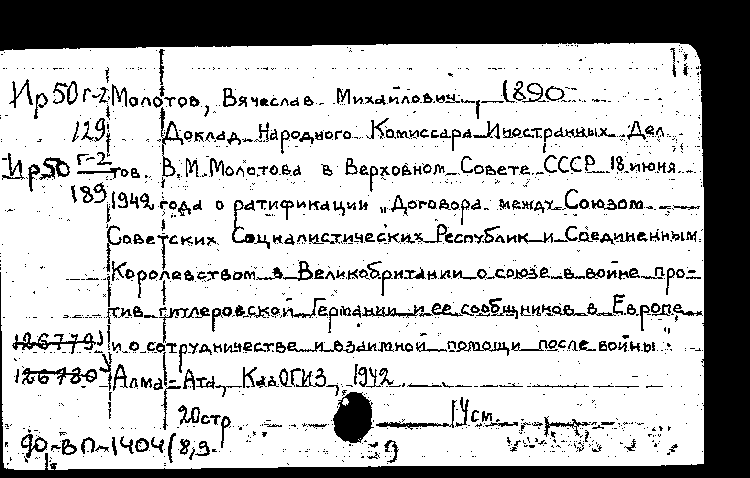 Ир50г-2 Молотов, Вячеслав Михайлович, 1890-
129 Доклад Народного Комиссара Иностранных Дел
Ир50 г-2 тов. В.М.Молотова в Верховном Совете СССР 18 июня
189 1942 года о ратификации „Договора между Союзом
Советских Социалистических Республик и Соединенным
Королевством в Великобритании о союзе в войне про-
тив гитлеровской Германии и ее сообщников в Европе
126779 и о сотрудничестве и взаимной помощи после войны".
126780 Алма-Ата, КазОГИЗ, 1942
20стр. 14см.
90-ВП-1404/8,9.